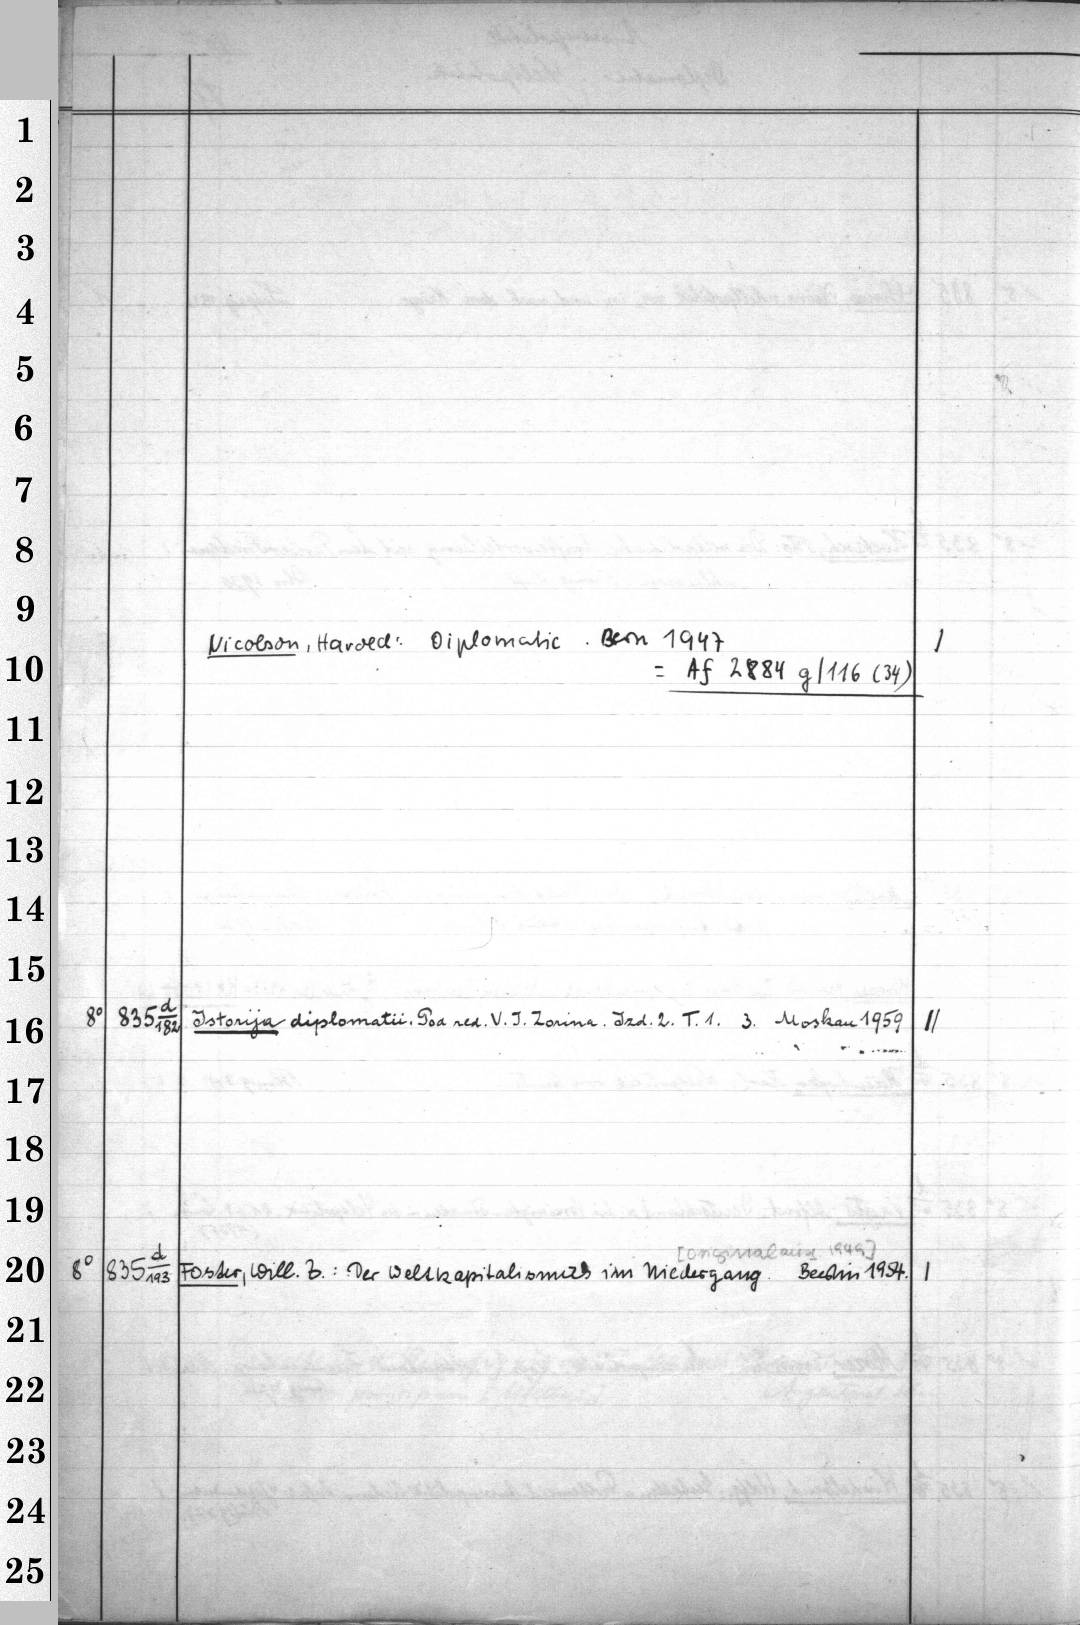 1
2
3
4
5
6
7
8
9
Nicolson, Harold: Diplomatie. Bern 1947 |
10 = Af 2884 g/116 (34)
11
12
13
14
15
16 8° 835 d/182 Istorija diplomatii. Pod red. V. I. Zorina. Izd. 2. T. 1. 3. Moskau 1959 ||
17
18
19
[Originalausg 1949]
20 8° 835 d/193 Foster, Will. Z.: Der Weltkapitalismus im Niedergang. Berlin 1954. |
21
22
23
24
25